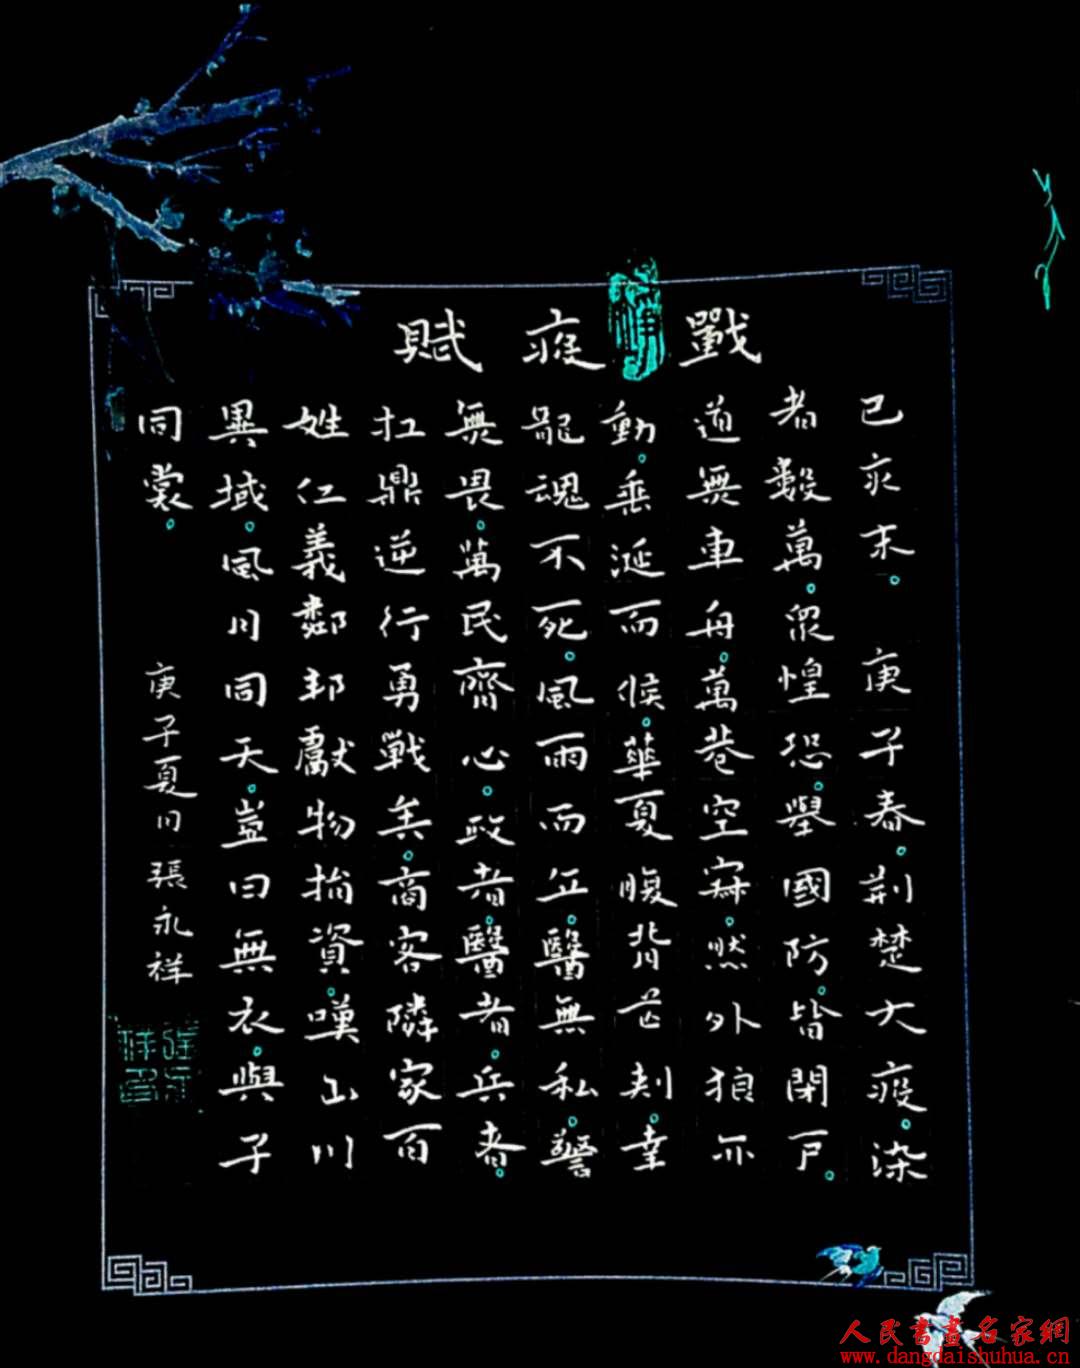 戰疫賦
已亥末。庚子春。荆楚大疫。染
者數萬。眾惶恐。舉國防。皆閉戶。
道無車舟。萬巷空寂。然外狼亦
動。垂涎而候。華夏腹背芒刺。幸
龍魂不死。風雨而立。醫無私。警
無畏。萬民齊心。政者。醫者。兵者。
扛鼎逆行勇戰矣。商客隣家百
姓仁義鄰邦獻物捐資。嘆山川
異域。風月同天。豈曰無衣。與子
同裳。
庚子夏月張永祥
人民書畫名家網
www.dangdaishuhua.com.cn